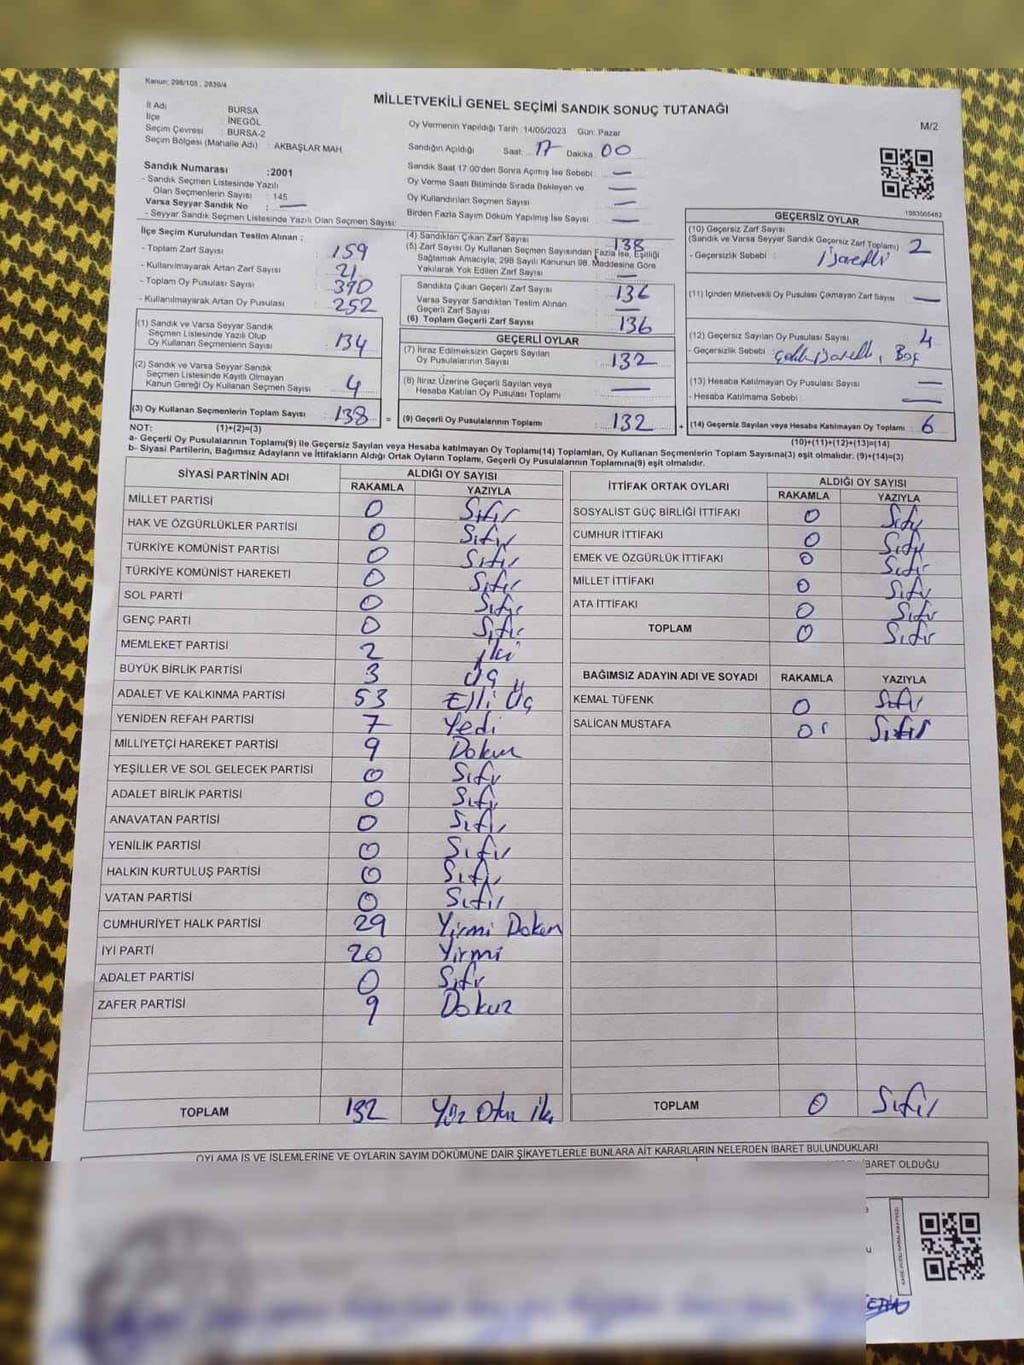 Kanun: 298/105 , 2839/4
MİLLETVEKİLİ GENEL SEÇİMİ SANDIK SONUÇ TUTANAĞI
M/2
İl Adı BURSA
İlçe İNEGÖL
Seçim Çevresi : BURSA-2
Seçim Bölgesi (Mahalle Adı) : AKBAŞLAR MAH.
Oy Vermenin Yapıldığı Tarih :14/05/2023 Gün: Pazar
Sandığın Açıldığı Saat: 17 Dakika 00
Sandık Saat 17:00'den Sonra Açılmış İse Sebebi : —
Oy Verme Saati Bitiminde Sırada Bekleyen ve —
Oy Kullandırılan Seçmen Sayısı
Birden Fazla Sayım Döküm Yapılmış İse Sayısı —
Sandık Numarası :2001
- Sandık Seçmen Listesinde Yazılı
Olan Seçmenlerin Sayısı : 145
Varsa Seyyar Sandık No : —
- Seyyar Sandık Seçmen Listesinde Yazılı Olan Seçmen Sayısı:
İlçe Seçim Kurulundan Teslim Alınan ;
- Toplam Zarf Sayısı : 159
- Kullanılmayarak Artan Zarf Sayısı : 21
- Toplam Oy Pusulası Sayısı : 390
- Kullanılmayarak Artan Oy Pusulası : 252
(1) Sandık ve Varsa Seyyar Sandık
Seçmen Listesinde Yazılı Olup
Oy Kullanan Seçmenlerin Sayısı : 134
(2) Sandık ve Varsa Seyyar Sandık
Seçmen Listesinde Kayıtlı Olmayan
Kanun Gereği Oy Kullanan Seçmen Sayısı : 4
(3) Oy Kullanan Seçmenlerin Toplam Sayısı : 138 =
(4) Sandıktan Çıkan Zarf Sayısı : 138
(5) Zarf Sayısı Oy Kullanan Seçmen Sayısından Fazla İse, Eşitliği
Sağlamak Amacıyla, 298 Sayılı Kanunun 98. Maddesine Göre
Yakılarak Yok Edilen Zarf Sayısı —
Sandıkta Çıkan Geçerli Zarf Sayısı : 136
Varsa Seyyar Sandıktan Teslim Alınan
Geçerli Zarf Sayısı : —
(6) Toplam Geçerli Zarf Sayısı : 136
GEÇERLİ OYLAR
(7) İtiraz Edilmeksizin Geçerli Sayılan
Oy Pusulalarının Sayısı : 132
(8) İtiraz Üzerine Geçerli Sayılan veya
Hesaba Katılan Oy Pusulası Toplamı : —
(9) Geçerli Oy Pusulalarının Toplamı : 132 +
1083005482
GEÇERSİZ OYLAR
(10) Geçersiz Zarf Sayısı
(Sandık ve Varsa Seyyar Sandık Geçersiz Zarf Toplamı) : 2
- Geçersizlik Sebebi : İşaretli
(11) İçinden Milletvekili Oy Pusulası Çıkmayan Zarf Sayısı : —
(12) Geçersiz Sayılan Oy Pusulası Sayısı : 4
- Geçersizlik Sebebi : Boş
(13) Hesaba Katılmayan Oy Pusulası Sayısı : —
- Hesaba Katılmama Sebebi : —
(14) Geçersiz Sayılan veya Hesaba Katılmayan Oy Toplamı : 6
NOT: (1)+(2)=(3)
(10)+(11)+(12)+(13)=(14)
a- Geçerli Oy Pusulalarının Toplamı(9) ile Geçersiz Sayılan veya Hesaba katılmayan Oy Toplamı(14) Toplamları, Oy Kullanan Seçmenlerin Toplam Sayısına(3) eşit olmalıdır. (9)+(14)=(3)
b- Siyasi Partilerin, Bağımsız Adayların ve İttifakların Aldığı Ortak Oyların Toplamı, Geçerli Oy Pusulalarının Toplamına(9) eşit olmalıdır.
SİYASİ PARTİNİN ADI ALDIĞI OY SAYISI
RAKAMLA YAZIYLA
MİLLET PARTİSİ 0 Sıfır
HAK VE ÖZGÜRLÜKLER PARTİSİ 0 Sıfır
TÜRKİYE KOMÜNİST PARTİSİ 0 Sıfır
TÜRKİYE KOMÜNİST HAREKETİ 0 Sıfır
SOL PARTİ 0 Sıfır
GENÇ PARTİ 0 Sıfır
MEMLEKET PARTİSİ 2 İki
BÜYÜK BİRLİK PARTİSİ 3 Üç
ADALET VE KALKINMA PARTİSİ 53 Elli Üç
YENİDEN REFAH PARTİSİ 7 Yedi
MİLLİYETÇİ HAREKET PARTİSİ 9 Dokuz
YEŞİLLER VE SOL GELECEK PARTİSİ 0 Sıfır
ADALET BİRLİK PARTİSİ 0 Sıfır
ANAVATAN PARTİSİ 0 Sıfır
YENİLİK PARTİSİ 0 Sıfır
HALKIN KURTULUŞ PARTİSİ 0 Sıfır
VATAN PARTİSİ 0 Sıfır
CUMHURİYET HALK PARTİSİ 29 Yirmi Dokuz
İYİ PARTİ 20 Yirmi
ADALET PARTİSİ 0 Sıfır
ZAFER PARTİSİ 9 Dokuz
TOPLAM 132 Yüz Otuz iki
İTTİFAK ORTAK OYLARI ALDIĞI OY SAYISI
RAKAMLA YAZIYLA
SOSYALİST GÜÇ BİRLİĞİ İTTİFAKI 0 Sıfır
CUMHUR İTTİFAKI 0 Sıfır
EMEK VE ÖZGÜRLÜK İTTİFAKI 0 Sıfır
MİLLET İTTİFAKI 0 Sıfır
ATA İTTİFAKI 0 Sıfır
TOPLAM 0 Sıfır
BAĞIMSIZ ADAYIN ADI VE SOYADI RAKAMLA YAZIYLA
KEMAL TÜFENK 0 Sıfır
SALİCAN MUSTAFA 0 Sıfır
TOPLAM 0 Sıfır
OYLAMA İŞ VE İŞLEMLERİNE VE OYLARIN SAYIM DÖKÜMÜNE DAİR ŞİKAYETLERLE BUNLARA AİT KARARLARIN NELERDEN İBARET BULUNDUKLARI
İBARET OLDUĞU